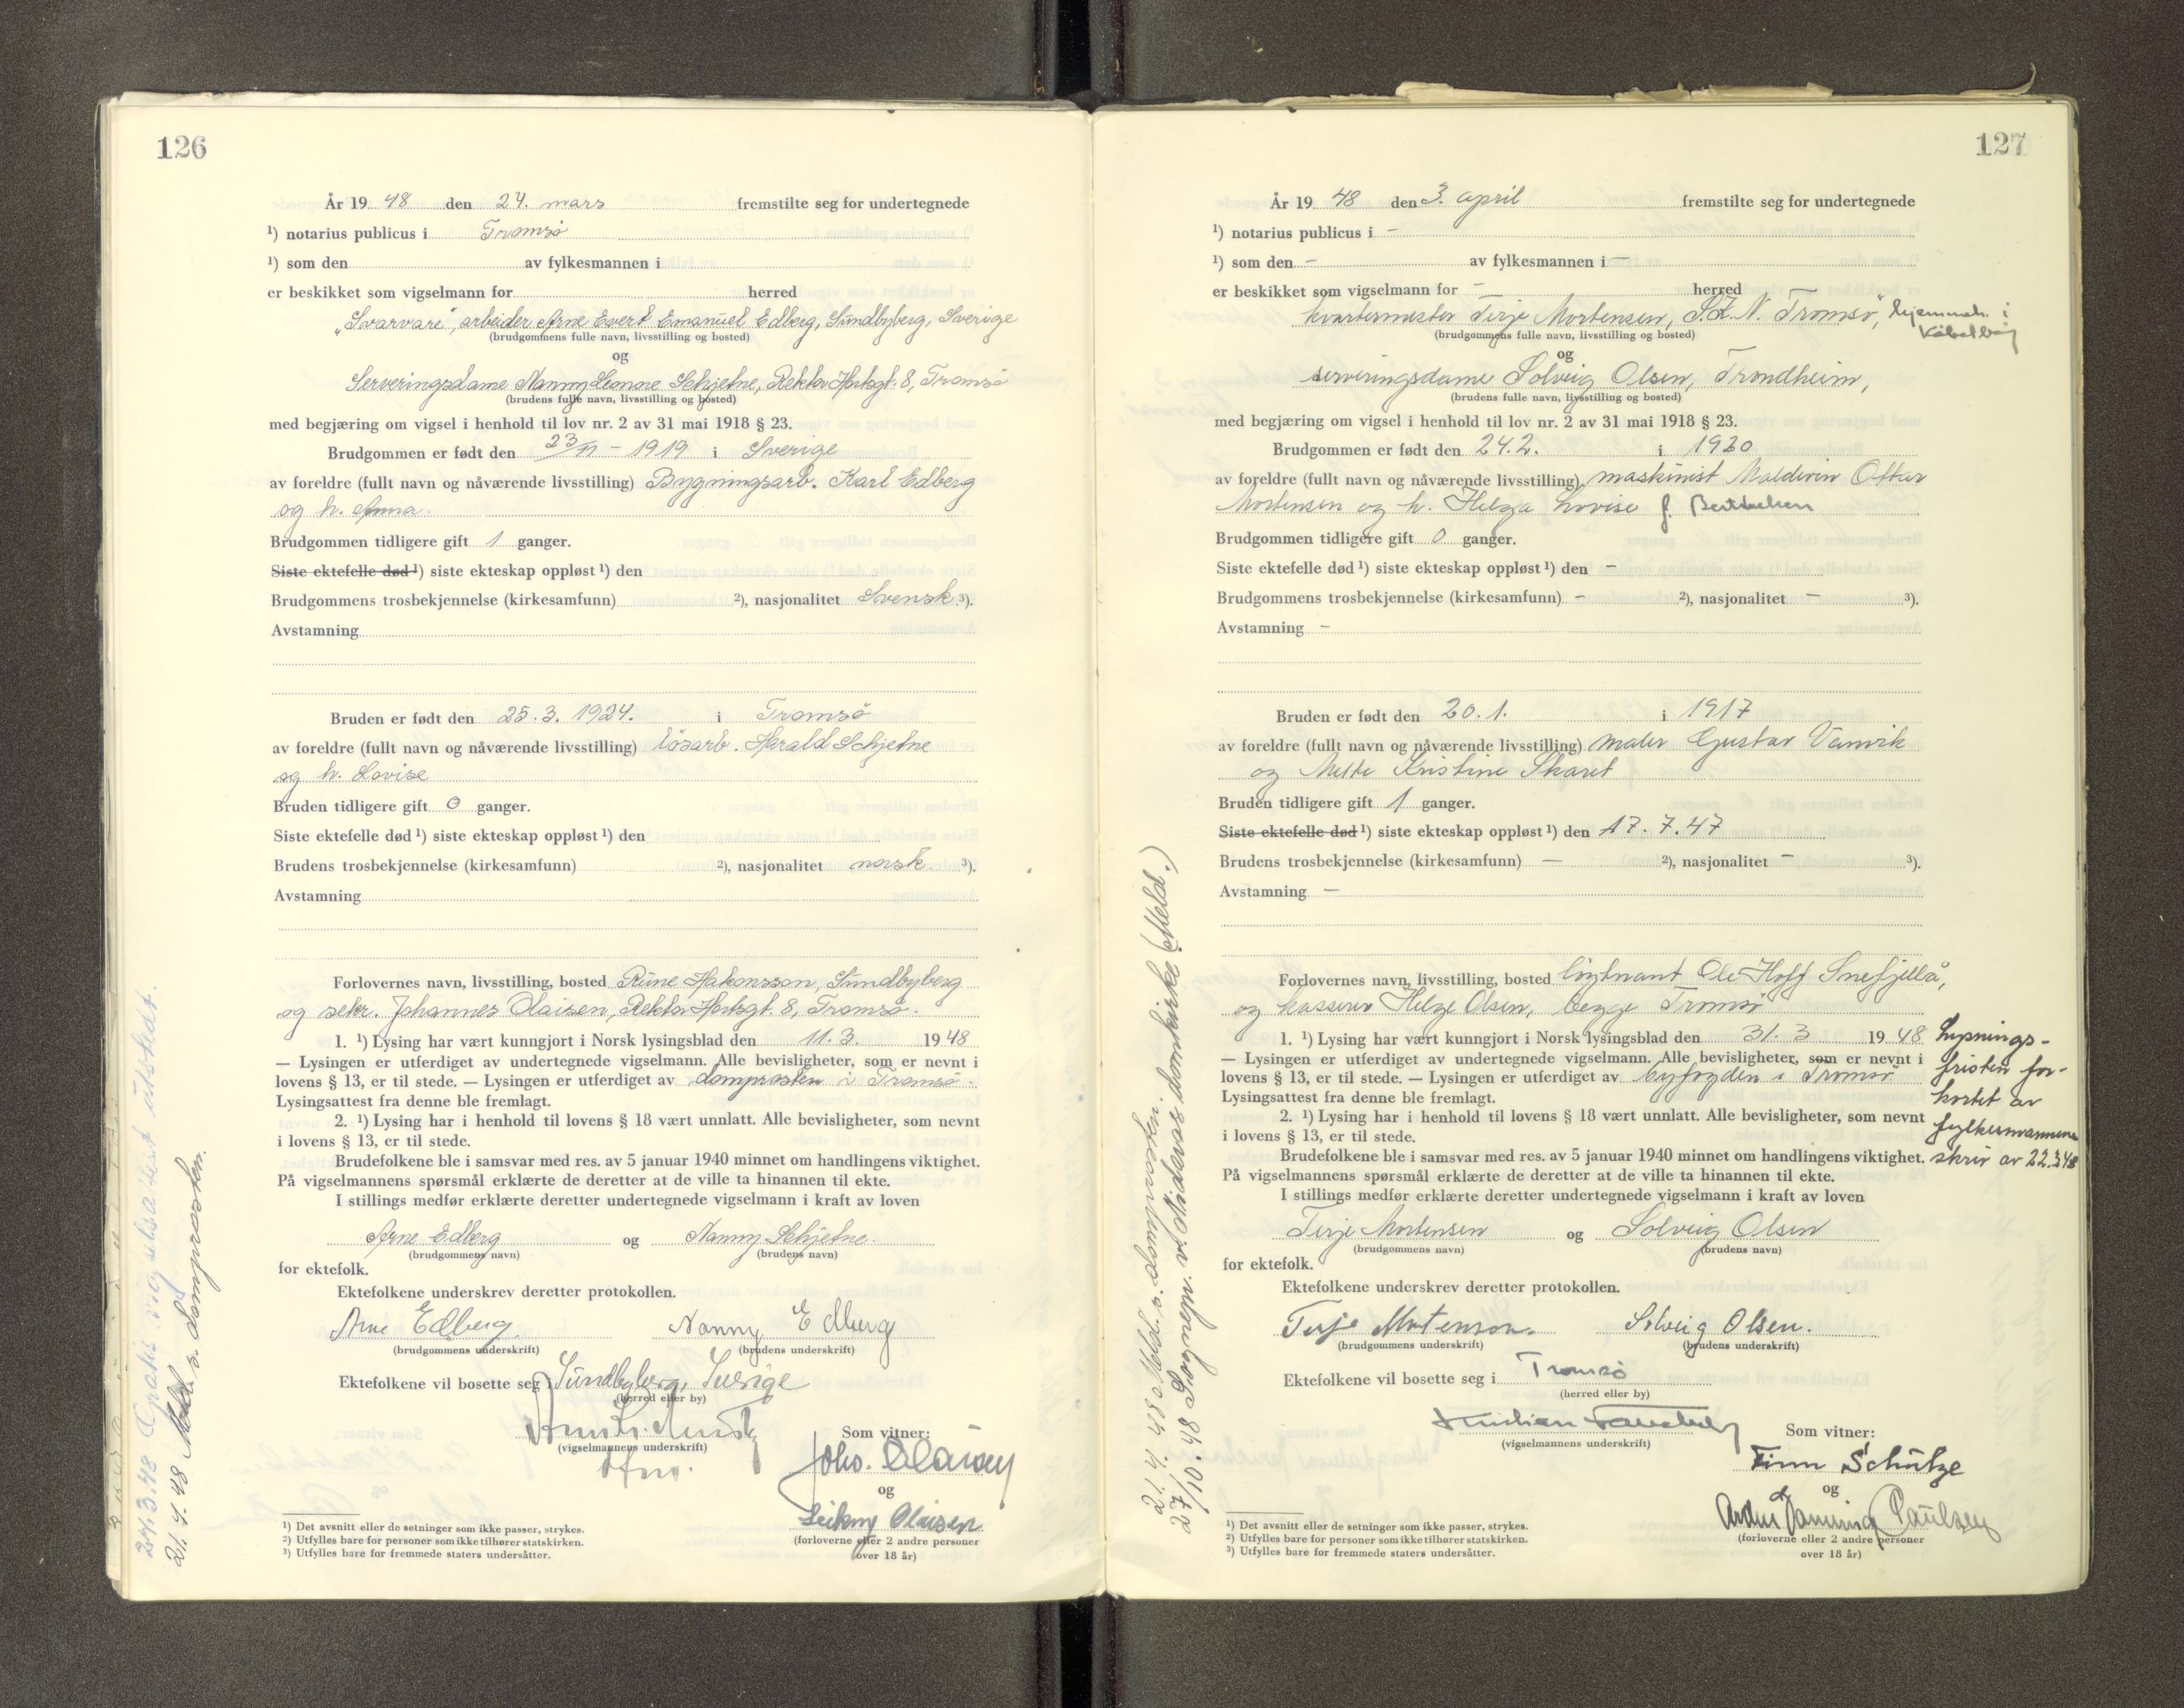 126
År 19 48 den 24. mars fremstilte seg for undertegnede
¹) notarius publicus i Tromsø
¹) som den av fylkesmannen i
er beskikket som vigselmann for herred
„Svarvare", arbeider Arne Evert Emanuel Edberg, Sundbyberg, Sverige
(brudgommens fulle navn, livsstilling og bosted)
og
Serveringsdame Nanny Schjetne, Rektor Horstgt. 8, Tromsø
(brudens fulle navn, livsstilling og bosted)
med begjæring om vigsel i henhold til lov nr. 2 av 31 mai 1918 § 23.
Brudgommen er født den 23/11 - 1919 i Sverige
av foreldre (fullt navn og nåværende livsstilling) Bygningsarb. Karl Edberg
og h. Anna.
Brudgommen tidligere gift 1 ganger.
Siste ektefelle død ¹) siste ekteskap oppløst ¹) den
Brudgommens trosbekjennelse (kirkesamfunn) ²), nasjonalitet Svensk ³).
Avstamning
Bruden er født den 25.3.1924. i Tromsø
av foreldre (fullt navn og nåværende livsstilling) løsarb. Harald Schjetne
og h. Lovise
Bruden tidligere gift 0 ganger.
Siste ektefelle død ¹) siste ekteskap oppløst ¹) den
Brudens trosbekjennelse (kirkesamfunn) ²), nasjonalitet norsk ³).
Avstamning
Forlovernes navn, livsstilling, bosted Rune Hakonsson, Sundbyberg
og sekr. Johannes Olaisen, Rektor Horstgt. 8, Tromsø.
1. ¹) Lysing har vært kunngjort i Norsk lysingsblad den 11.3. 19 48
— Lysingen er utferdiget av undertegnede vigselmann. Alle bevisligheter, som er nevnt i
lovens § 13, er til stede. — Lysingen er utferdiget av domprosten i Tromsø.
Lysingsattest fra denne ble fremlagt.
2. ¹) Lysing har i henhold til lovens § 18 vært unnlatt. Alle bevisligheter, som nevnt
i lovens § 13, er til stede.
Brudefolkene ble i samsvar med res. av 5 januar 1940 minnet om handlingens viktighet.
På vigselmannens spørsmål erklærte de deretter at de ville ta hinannen til ekte.
I stillings medfør erklærte deretter undertegnede vigselmann i kraft av loven
Arne Edberg og Nanny Schjetne.
(brudgommens navn) (brudens navn)
for ektefolk.
Ektefolkene underskrev deretter protokollen.
Arne Edberg. Nanny Edberg
(brudgommens underskrift) (brudens underskrift)
Ektefolkene vil bosette seg i Sundbyberg, Sverige
(herred eller by)
(vigselmannens underskrift)
Som vitner:
Johs. Olaisen
og
Leikny Olaisen
(forloverne eller 2 andre personer
over 18 år)
¹) Det avsnitt eller de setninger som ikke passer, strykes.
²) Utfylles bare for personer som ikke tilhører statskirken.
³) Utfylles bare for fremmede staters undersåtter.
24.3.48 Gratis vigselsattest utstedt.
21.4.48 Meld. t. domprosten.
127
År 19 48 den 3. april fremstilte seg for undertegnede
¹) notarius publicus i -
¹) som den - av fylkesmannen i -
er beskikket som vigselmann for - herred
kvartermester Terje Mortensen, Tromsø, hjemmeh. i
Kabelvåg
(brudgommens fulle navn, livsstilling og bosted)
og
serveringsdame Solveig Olsen, Trondheim,
(brudens fulle navn, livsstilling og bosted)
med begjæring om vigsel i henhold til lov nr. 2 av 31 mai 1918 § 23.
Brudgommen er født den 24.2. i 1920
av foreldre (fullt navn og nåværende livsstilling) maskinist Ottar
Mortensen og h. Helga Lovise f. Berthelsen
Brudgommen tidligere gift 0 ganger.
Siste ektefelle død ¹) siste ekteskap oppløst ¹) den -
Brudgommens trosbekjennelse (kirkesamfunn) - ²), nasjonalitet - ³).
Avstamning -
Bruden er født den 20.1. i 1917
av foreldre (fullt navn og nåværende livsstilling) maler Gustav Vanvik
og Mette Kristine Skaret
Bruden tidligere gift 1 ganger.
Siste ektefelle død ¹) siste ekteskap oppløst ¹) den 17.7.47
Brudens trosbekjennelse (kirkesamfunn) — ²), nasjonalitet - ³).
Avstamning —
Forlovernes navn, livsstilling, bosted løytnant Ole Hoff Snefjellå,
og kasserer Helge Olsen, begge Tromsø
1. ¹) Lysing har vært kunngjort i Norsk lysingsblad den 31.3 19 48
— Lysingen er utferdiget av undertegnede vigselmann. Alle bevisligheter, som er nevnt i
lovens § 13, er til stede. — Lysingen er utferdiget av byfogden i Tromsø
Lysingsattest fra denne ble fremlagt.
2. ¹) Lysing har i henhold til lovens § 18 vært unnlatt. Alle bevisligheter, som nevnt
i lovens § 13, er til stede.
Brudefolkene ble i samsvar med res. av 5 januar 1940 minnet om handlingens viktighet.
På vigselmannens spørsmål erklærte de deretter at de ville ta hinannen til ekte.
I stillings medfør erklærte deretter undertegnede vigselmann i kraft av loven
Lysnings-
fristen for-
kortet av
fylkesmannens
skriv av 22.3.48
Terje Mortensen og Solveig Olsen
(brudgommens navn) (brudens navn)
for ektefolk.
Ektefolkene underskrev deretter protokollen.
Terje Mortensen. Solveig Olsen.
(brudgommens underskrift) (brudens underskrift)
Ektefolkene vil bosette seg i Tromsø
(herred eller by)
(vigselmannens underskrift)
Som vitner:
Finn Schütze
og
Paulsen
(forloverne eller 2 andre personer
over 18 år)
¹) Det avsnitt eller de setninger som ikke passer, strykes.
²) Utfylles bare for personer som ikke tilhører statskirken.
³) Utfylles bare for fremmede staters undersåtter.
21.4.48 Meld. t. domprosten.
27/10.48 Sognepr. v. Nidaros domkirke (Meld.)